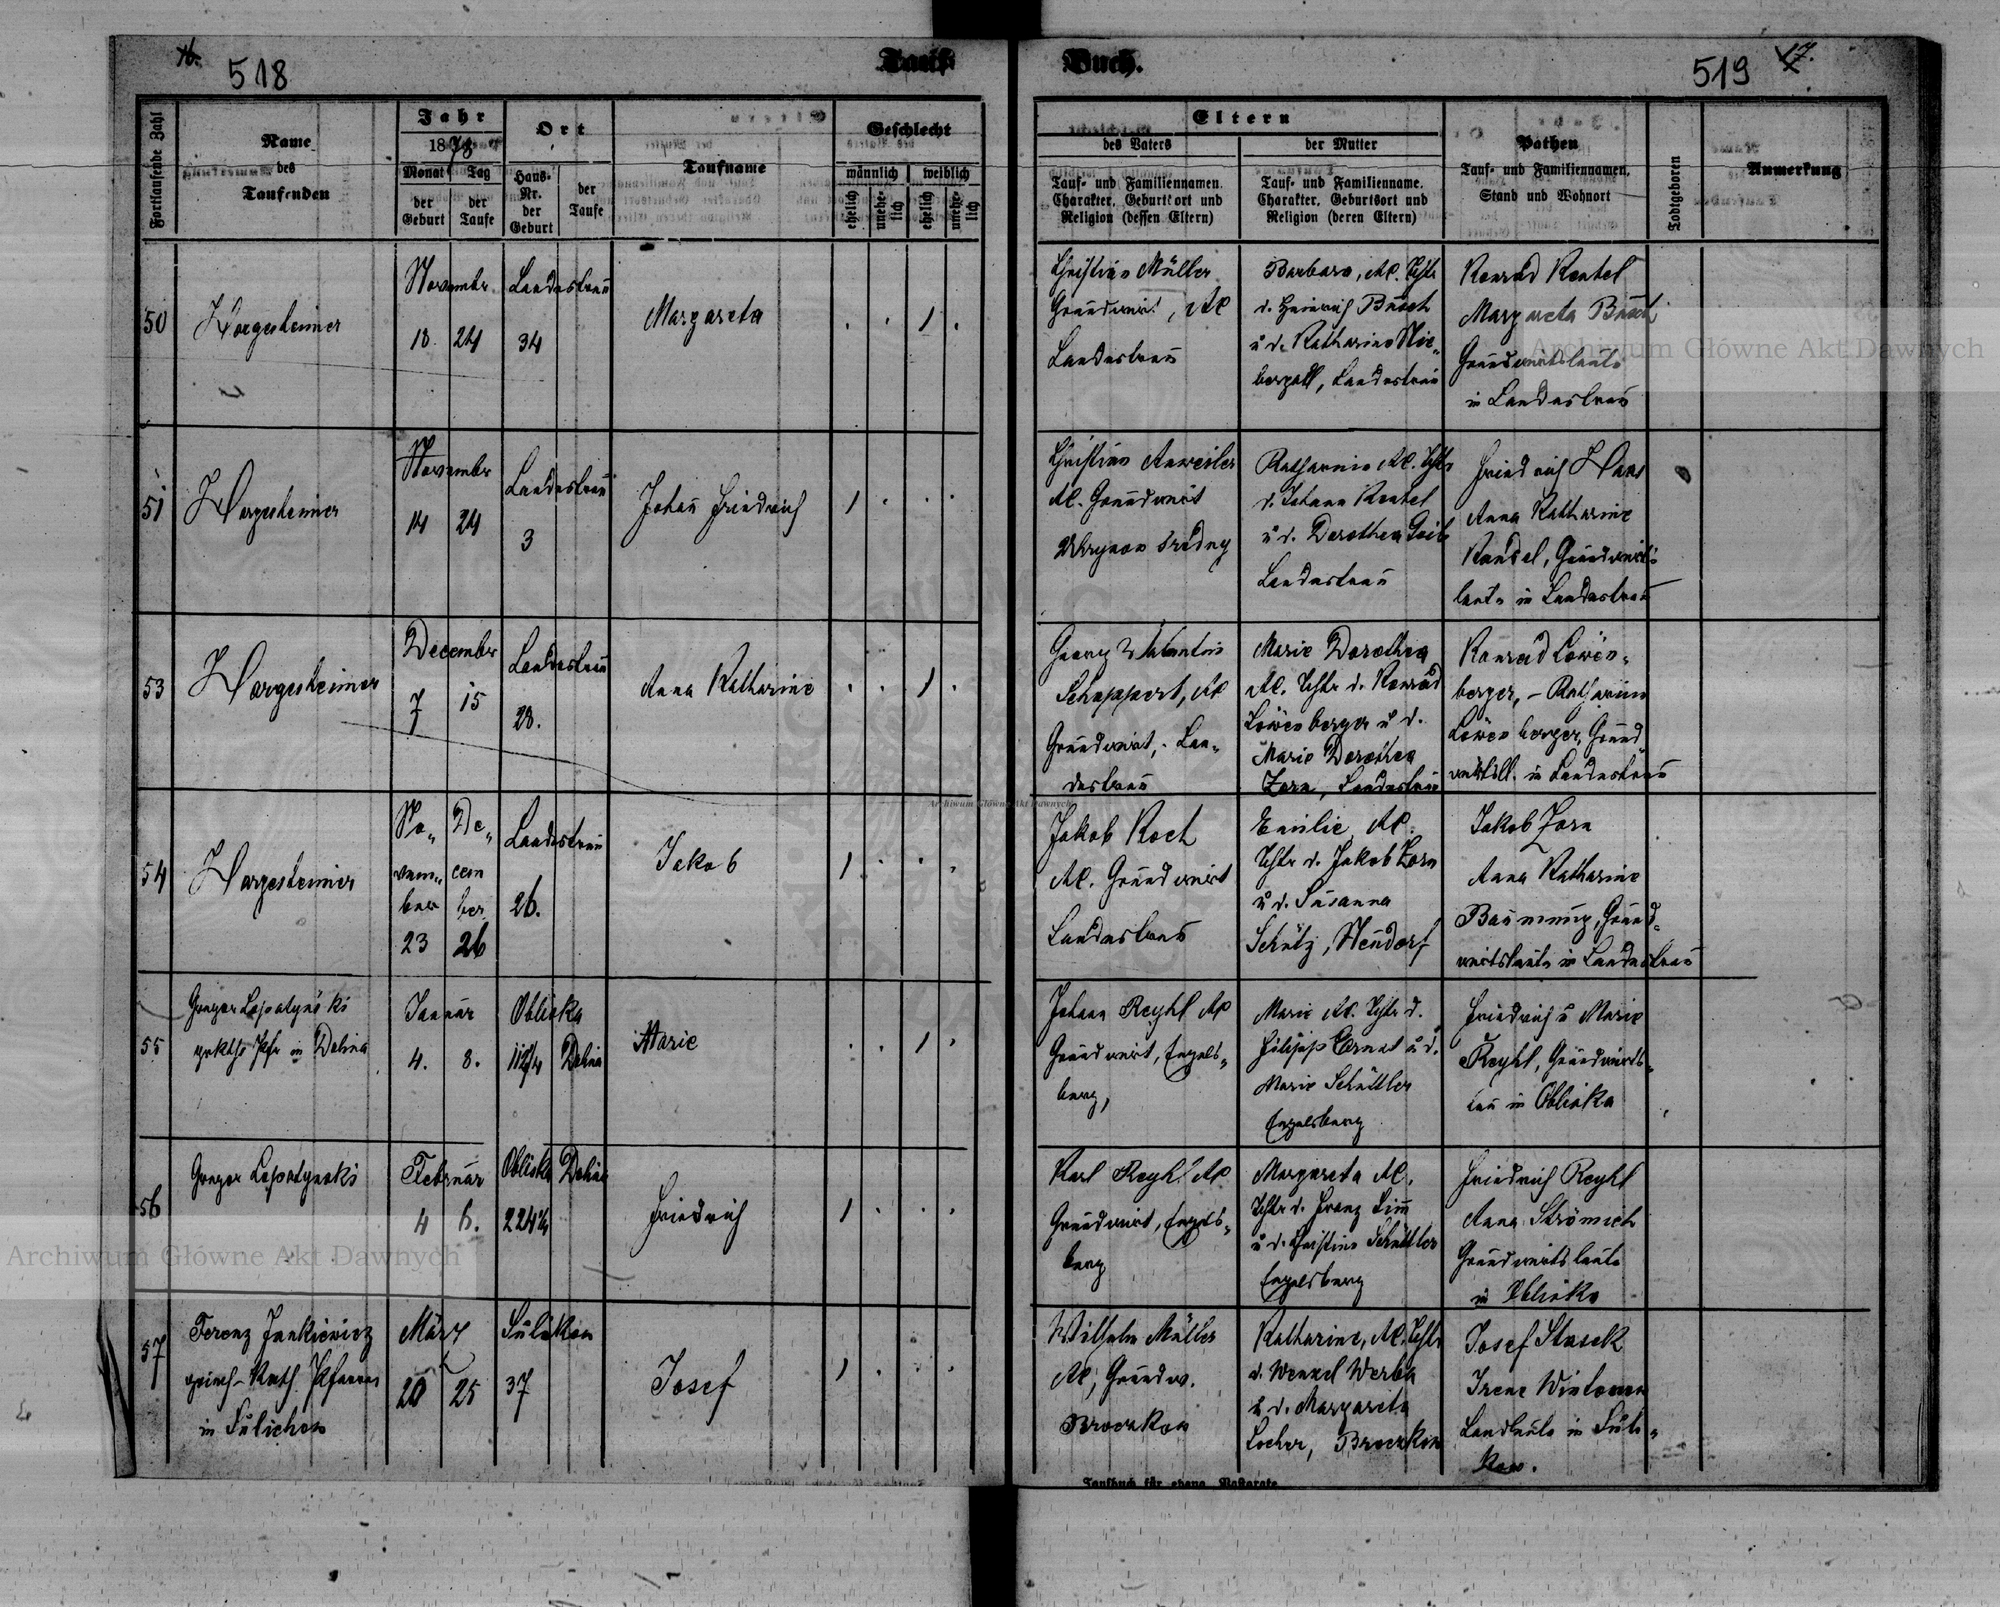 518
Tauf-
Buch.
519
17.
Fortlaufende Zahl
Name
des
Taufenden
Jahr
1878
Monat
Tag
der
Geburt
der
Taufe
Ort
Haus-
Nr.
der
Geburt
der
Taufe
Taufname
Geschlecht
männlich
weiblich
ehelich
unehe-
lich
ehelich
unehe-
lich
Eltern
des Vaters
der Mutter
Tauf- und Familiennamen.
Charakter, Geburtsort und
Religion (dessen Eltern)
Tauf- und Familienname.
Charakter, Geburtsort und
Religion (deren Eltern)
Pathen
Tauf- und Familiennamen,
Stand und Wohnort
Todtgeboren
Anmerkung
50
Hargesheimer
Novembr.
18. 24
Landestreu
34
Margareta
Christian Müller
Grundwirt, AC
Landestreu
Barbara, AC. Tchtr
d. Heinrich Busch
u d. Katharina Nie-
bergall, Landestreu
Konrad Rentel
Margareta Busch
Grundwirtsleute
in Landestreu
51
Hargesheimer
November
14 24
Landestreu
3
Johan Friedrich
Christian Anweiler
AC. Grundwirt
Uhrynow sredny
Katharina AC. Tchtr
d. Johann Rentel
u d. Dorothea
Landestreu
Friedrich Haas
Anna Katharine
Grundwirts-
leute in Landestreu
53
Hargesheimer
December
7 15
Landestreu
28.
Anna Katharine
Georg Valentin
Schappert, AC
Grundwirt, Lan-
destreu
Marie Dorothea
AC. Tchtr d. Konrad
Löwenberger u d.
Marie Dorothea
Zorn, Landestreu
Konrad Löwen-
berger, - Katharina
Löwenberger, Grund
in Landestreu
54
Hargesheimer
No-
vem-
ber
23
De-
cem
ber
26
Landestreu
26.
Jakob
Jakob Koch
AC. Grundwirt
Landestreu
Emilie AC.
Tchtr d. Jakob Zorn
u d. Susanna
Schütz, Neudorf
Jakob Zorn
Anna Katharine
Baumung, Grund-
wirtsleute in Landestreu
55
Gregor Lopatynski
in Dolina
Januar
4. 8.
Obliska
Dolina
Marie
Johann Reyhl AC
Grundwirt, Engels-
berg,
Marie AC. Tchtr d.
Filipp Ernst u d.
Marie Schüttler
Engelsberg
Friedrich u Marie
Reyhl, Grundwirts-
leu in Obliska
56
Gregor Lopatynski
Februar
4 6.
Obliska Dolina
Friedrich
Karl Reyhl AC
Grundwirt, Engels-
berg
Margareta AC.
Tchtr d. Franz
u d. Christina Schüttler
Engelsberg
Friedrich Reyhl
Anna Strömich
Grundwirtsleute
in Obliska
57
Ferenz Jankiewicz
griech-Kath. Pfarrer
in Sulichow
März
20 25
Sulukow
37
Josef
Wilhelm Müller
AC, Grundw.
Broczkow
Katharine, AC. Tchtr
d. Wenzel Werba
u d. Margareta
Locher, Broczkow
Josef Stasek
Irene
Landleute in Sulu-
kow.
Taufbuch für evang. Pastorate
Archiwum Główne Akt Dawnych
Archiwum Główne Akt Dawnych
Archiwum Główne Akt Dawnych